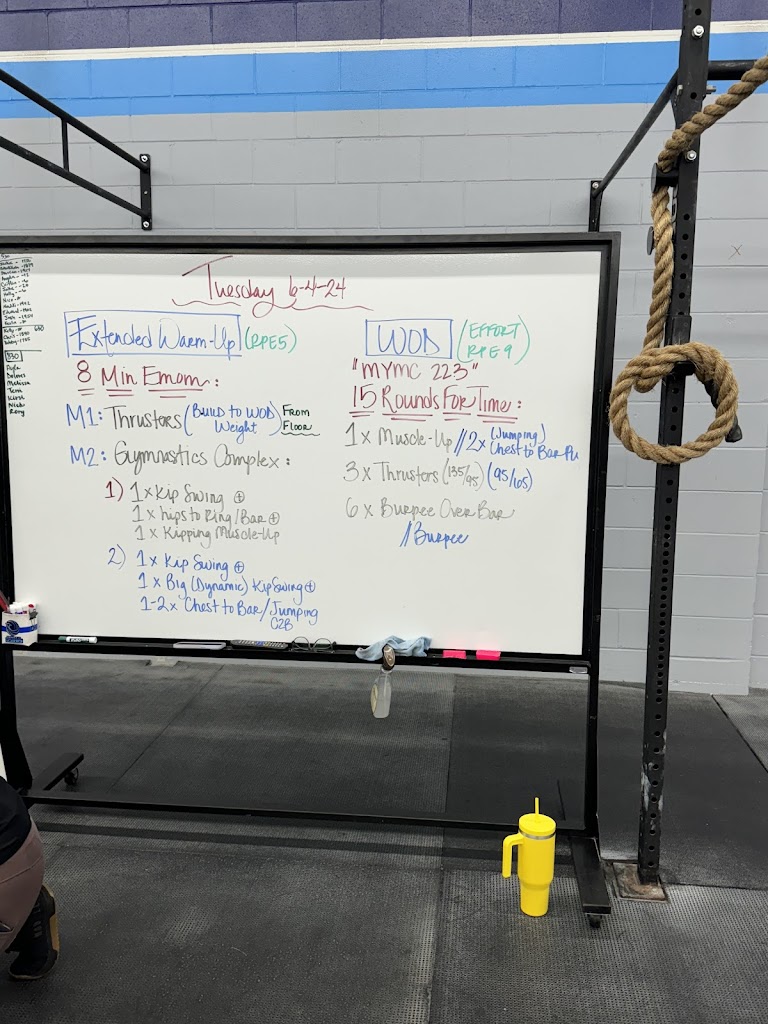 Tuesday 6-4-24
Extended Warm-Up (RPE5)
8 Min Emom:
M1: Thrusters (Build to WOD Weight) From Floor
M2: Gymnastics Complex:
1) 1x Kip Swing ⊕
1x hips to Ring/Bar ⊕
1x Kipping Muscle-Up
2) 1x Kip Swing ⊕
1x Big (Dynamic) Kip Swing ⊕
1-2x Chest to Bar/Jumping
C2B
WOD (EFFORT
RPE 9)
"MYMC 223"
15 Rounds For Time:
1x Muscle-Up //2x (Jumping)
Chest to Bar PU
3x Thrusters (135/95) (95/65)
6x Burpee Over Bar
//Burpee
530
Melissa